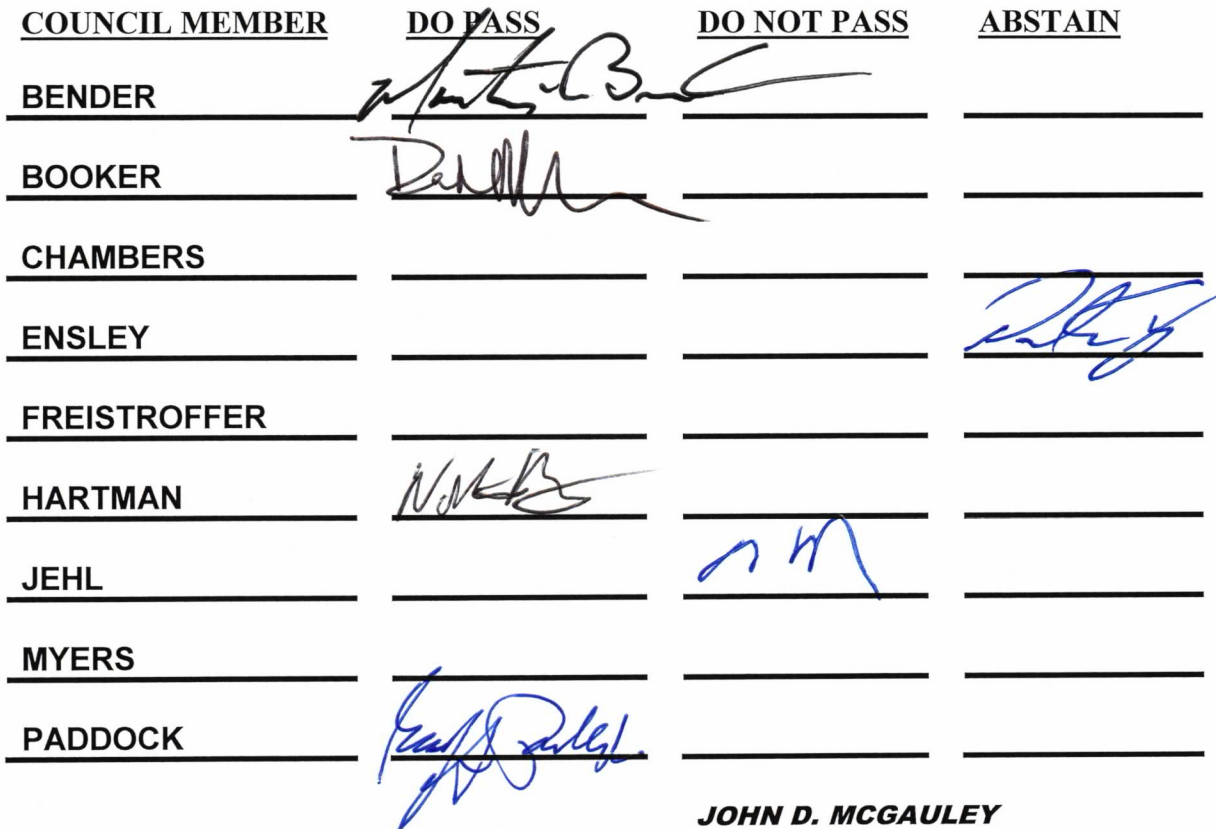 COUNCIL MEMBER DO PASS DO NOT PASS ABSTAIN
BENDER
BOOKER
CHAMBERS
ENSLEY
FREISTROFFER
HARTMAN
JEHL
MYERS
PADDOCK
JOHN D. MCGAULEY